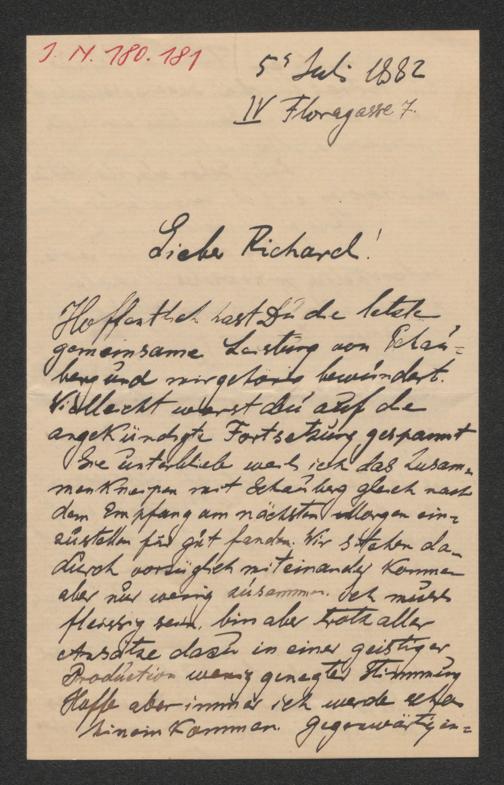 J. N. 180.181
5ᵗ Juli 1882
IV Floragasse 7.
Lieber Richard!
Hoffentlich hast Du die letzte
gemeinsame Leistung von Schau=
berg und mir gehörig bewundert.
Vielleicht warst du auf die
angekündigte Fortsetzung gespannt
Sie unterblieb weil ich das Zusam=
menkneipen mit Schauberg gleich nach
dem Empfang am nächsten Morgen ein=
zustellen für gut fand. Wir stehen da=
durch vorzüglich miteinander kommen
aber nur wenig zusammen. Ich muss
fleissig sein, bin aber trotz aller
Ansätze dazu in einer geistiger
Production wenig geneigten Stimmung
Hoffe aber immer ich werde schon
hineinkommen. Gegenwärtig